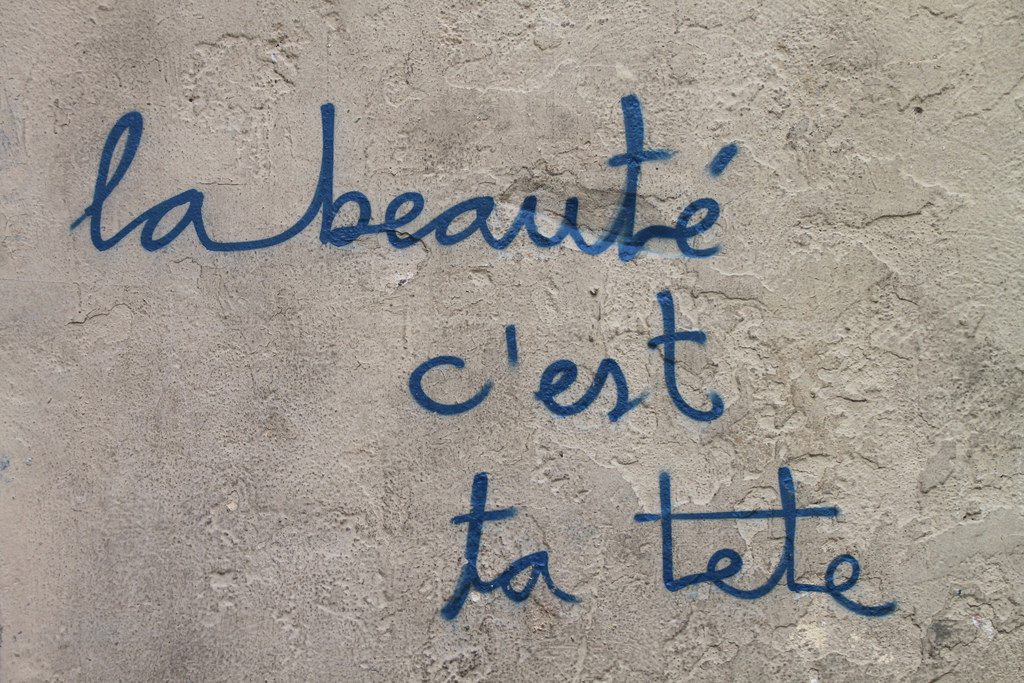 la beauté
c'est
ta tete